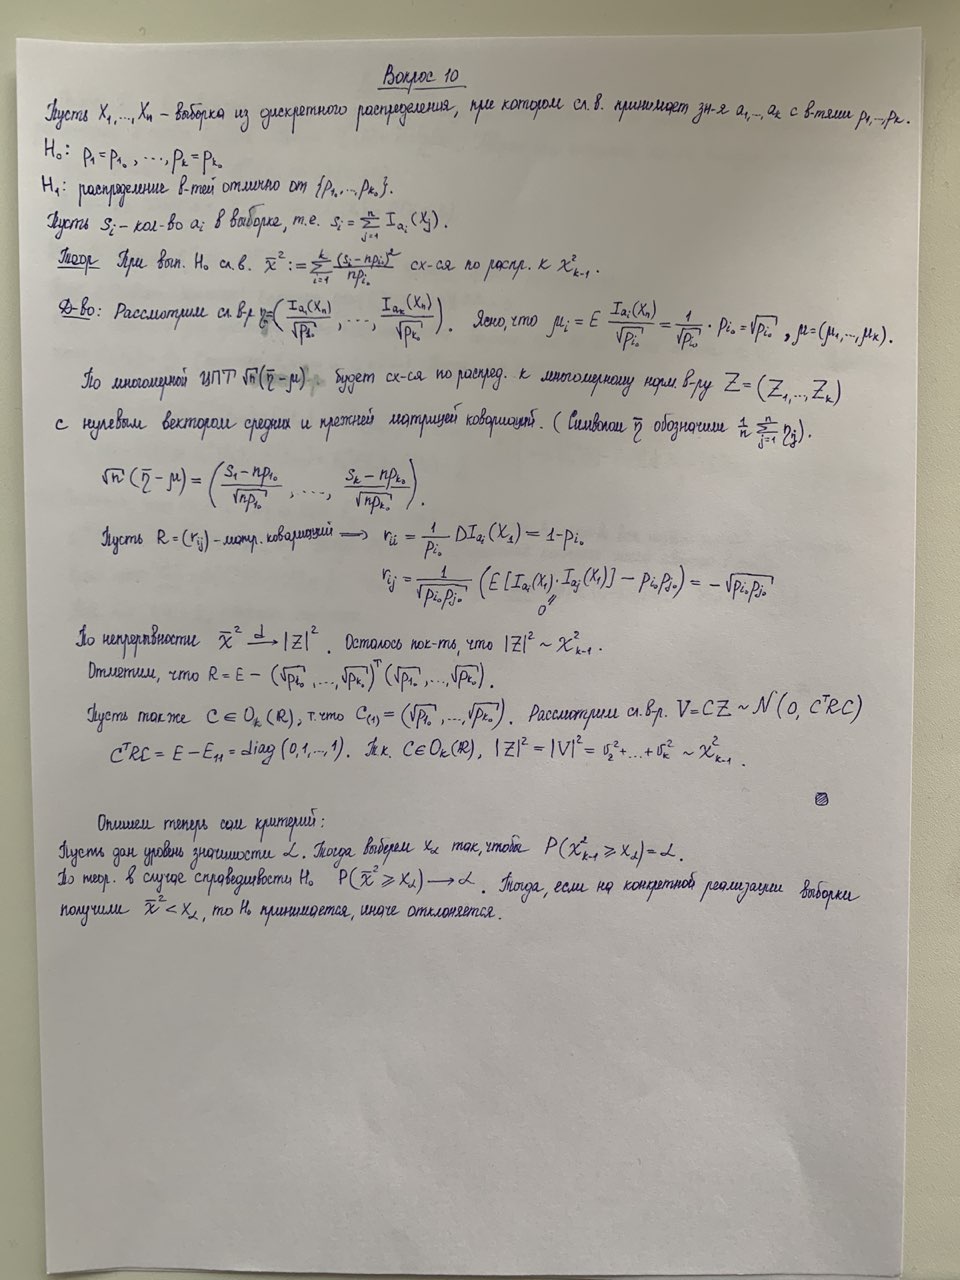 Вопрос 10
Пусть X₁,...,Xₙ – выборка из дискретного распределения, при котором сл.в. принимает зн-я a₁,..,aₖ с в-тями p₁,..,pₖ.
H₀: p₁=p₁₀, ..., pₖ=pₖ₀
H₁: распределение в-тей отлично от {p₁₀,..,pₖ₀}.
Пусть Sᵢ – кол-во aᵢ в выборке, т.е. Sᵢ = ∑ⱼ₌₁ⁿ I_{aᵢ}(Xⱼ).
Теор При вып. H₀ сл.в. X̄² := ∑ᵢ₌₁ᵏ (Sᵢ – npᵢ₀)²/npᵢ₀ сх-ся по распр. к χ²ₖ₋₁.
Д-во: Рассмотрим сл.в-р η = (I_{a₁}(Xₙ)/√p₁₀, ..., I_{aₖ}(Xₙ)/√pₖ₀). Ясно, что μᵢ = E I_{aᵢ}(Xₙ)/√pᵢ₀ = 1/√pᵢ₀ · pᵢ₀ = √pᵢ₀, μ=(μ₁,..,μₖ).
По многомерной ЦПТ √n(η̄–μ) будет сх-ся по распред. к многомерному норм. в-ру Z = (Z₁,..,Zₖ)
с нулевым вектором средних и прежней матрицей ковариаций. (Символом η̄ обозначили 1/n ∑ⱼ₌₁ⁿ ηⱼ).
√n(η̄–μ) = ((S₁–np₁₀)/√np₁₀, ..., (Sₖ–npₖ₀)/√npₖ₀).
Пусть R=(rᵢⱼ) – матр. ковариаций ⟹ rᵢᵢ = 1/pᵢ₀ DI_{aᵢ}(X₁) = 1–pᵢ₀
rᵢⱼ = 1/√pᵢ₀pⱼ₀ (E[I_{aᵢ}(X₁)·I_{aⱼ}(X₁)] – pᵢ₀pⱼ₀) = –√pᵢ₀pⱼ₀
0
По непрерывности X̄² →ᵈ |Z|². Осталось пок-ть, что |Z|² ~ χ²ₖ₋₁.
Отметим, что R = E – (√p₁₀,...,√pₖ₀)ᵀ(√p₁₀,..,√pₖ₀).
Пусть также C ∈ Oₖ(ℝ), т.что C₍₁₎ = (√p₁₀,..,√pₖ₀). Рассмотрим сл.в-р. V=CZ ~ N(0, CᵀRC)
CᵀRC = E – E₁₁ = diag(0,1,..,1). Т.к. C∈Oₖ(ℝ), |Z|² = |V|² = v₂²+...+vₖ² ~ χ²ₖ₋₁.
Опишем теперь сам критерий:
Пусть дан уровень значимости α. Тогда выберем x_α так, чтобы P(χ²ₖ₋₁ ⩾ x_α) = α.
По теор. в случае справедливости H₀ P(X̄² ⩾ x_α) → α. Тогда, если на конкретной реализации выборки
получили X̄² < x_α, то H₀ принимается, иначе отклоняется.